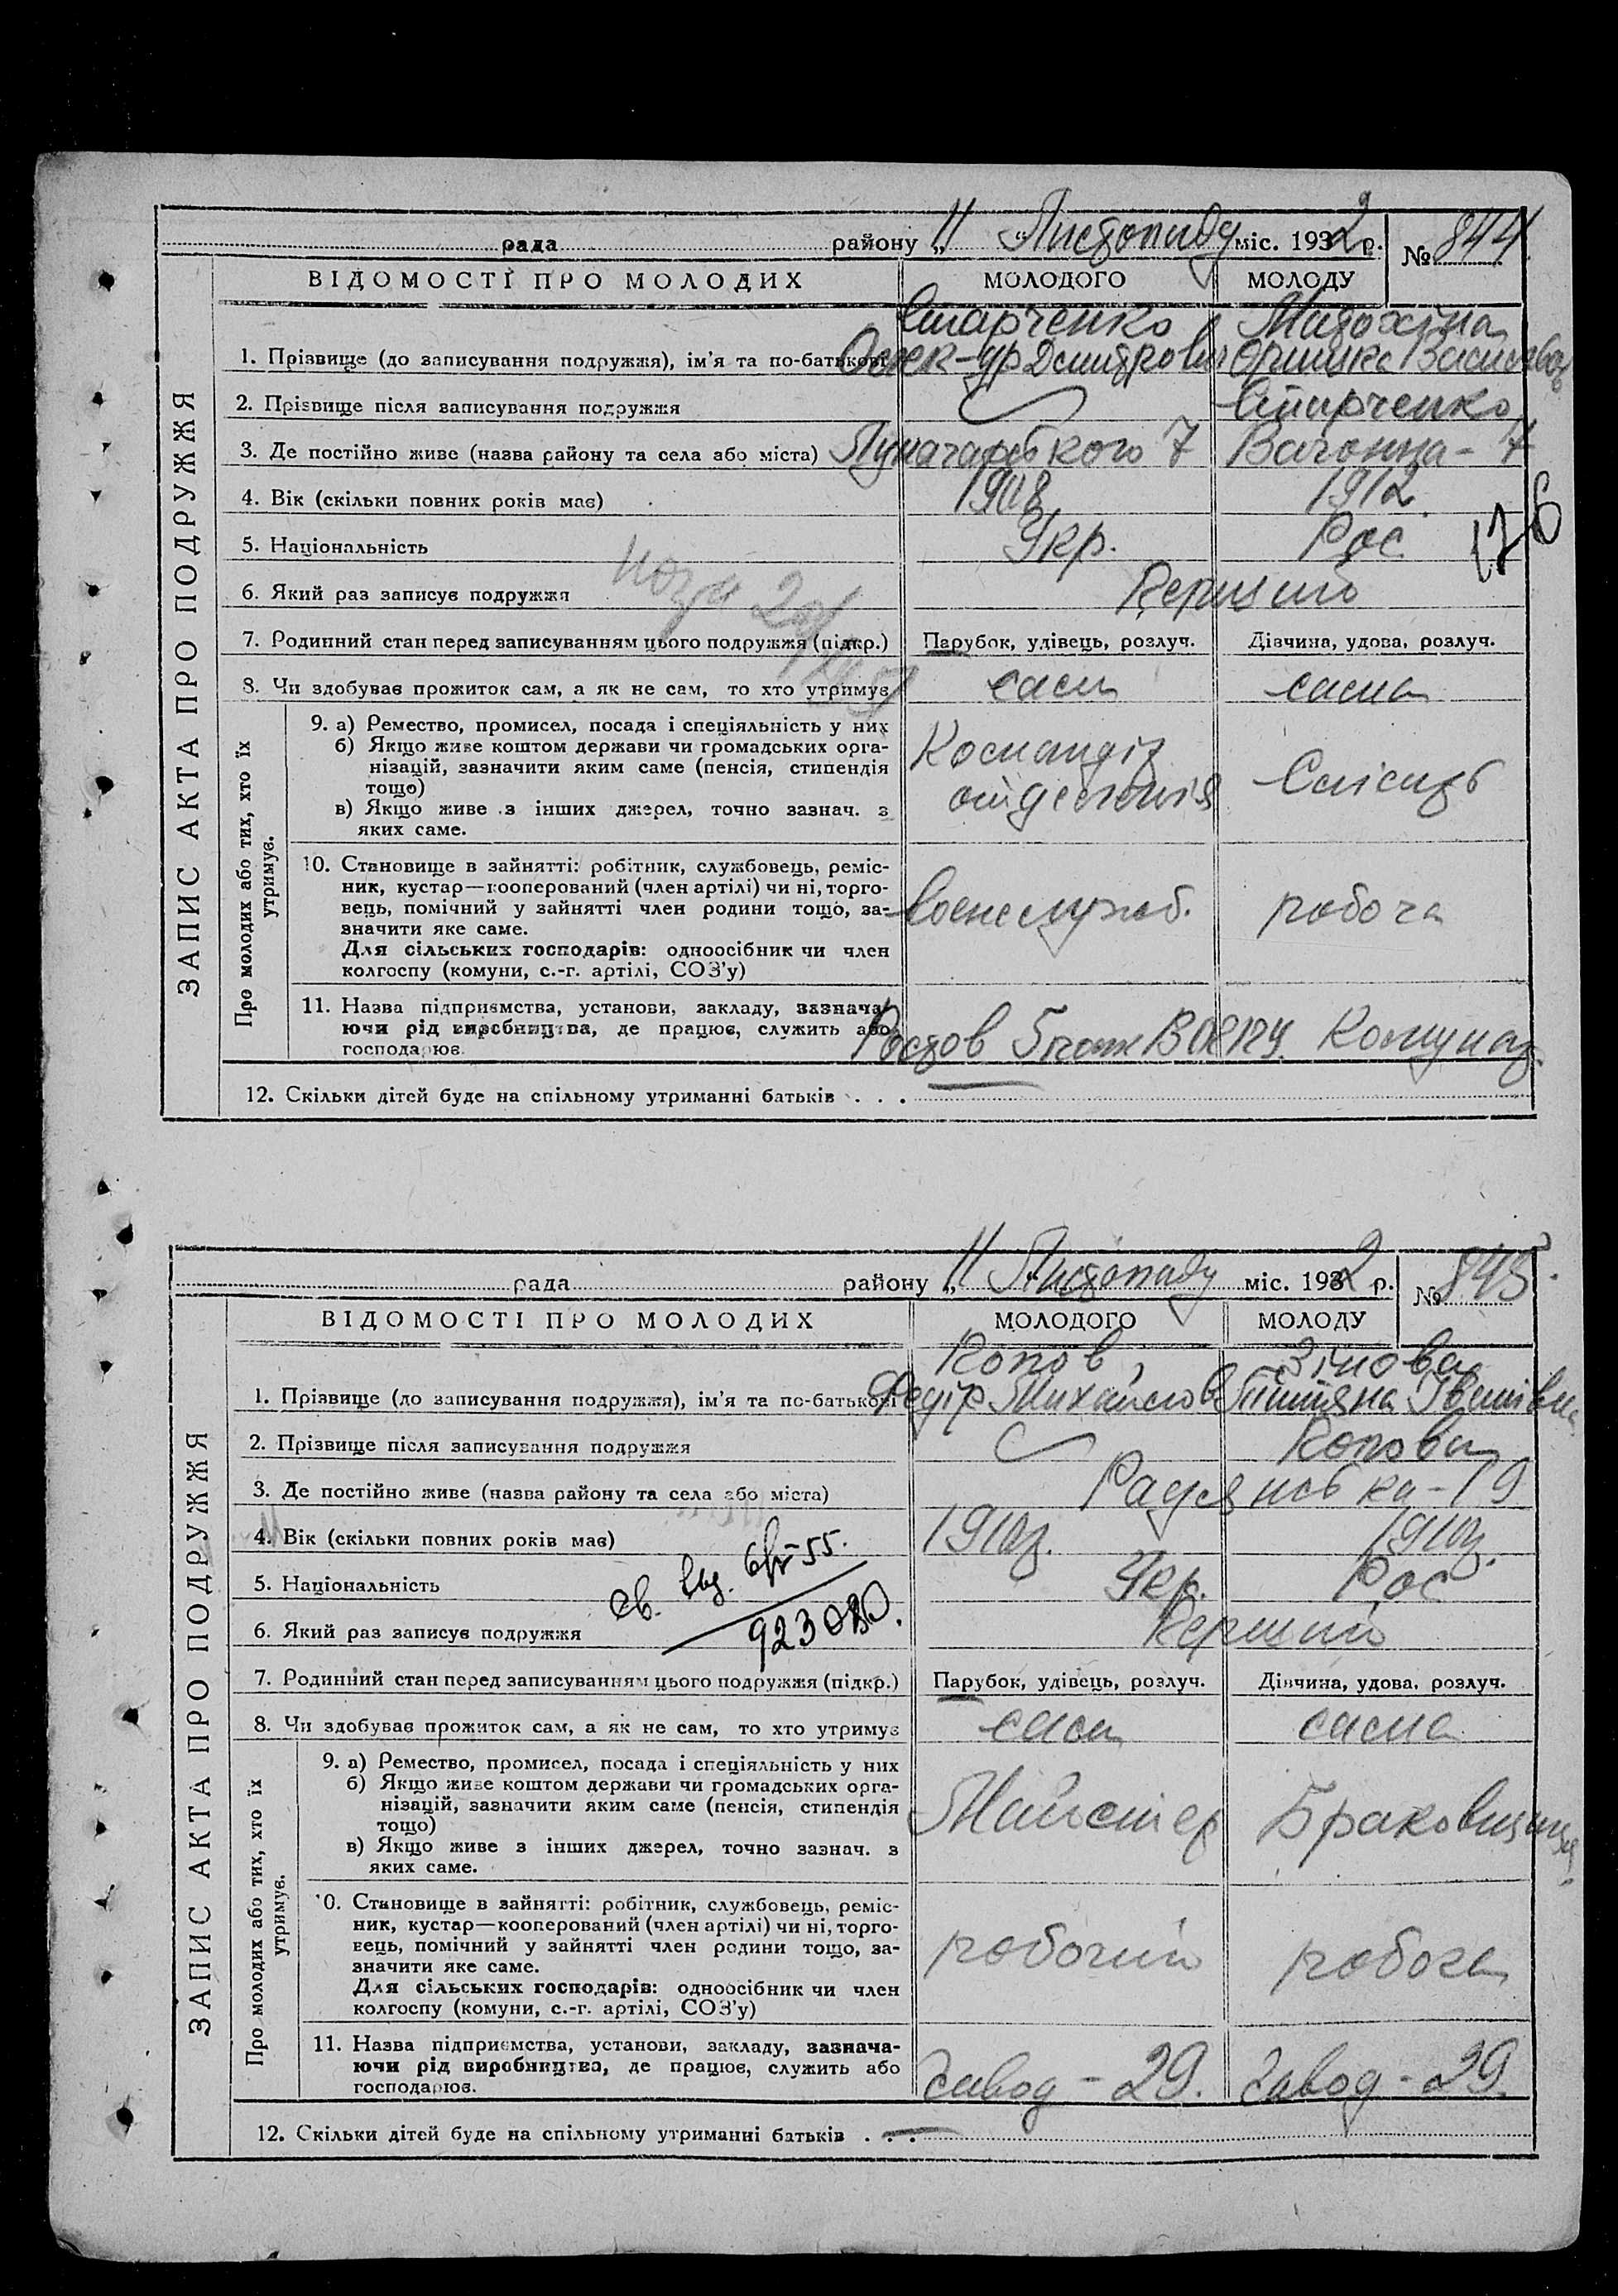 рада району „ 11 “ Листопаду міс. 1932 р. № 844
ВІДОМОСТІ ПРО МОЛОДИХ МОЛОДОГО МОЛОДУ
ЗАПИС АКТА ПРО ПОДРУЖЖЯ
Старченко
1. Прізвище (до записування подружжя), ім'я та по-батькові
2. Прізвище після записування подружжя Старченко
3. Де постійно живе (назва району та села або міста) Луначарського 7 Вагонна - 7
4. Вік (скільки повних років має) 1908 1912.
5. Національність Укр. Рос
176
6. Який раз записує подружжя Перший
7. Родинний стан перед записуванням цього подружжя (підкр.) Парубок, удівець, розлуч. Дівчина, удова, розлуч.
8. Чи здобуває прожиток сам, а як не сам, то хто утримує сам сама
Про молодих або тих, хто їх утримує.
9. а) Ремество, промисел, посада і спеціяльність у них
б) Якщо живе коштом держави чи громадських орга-
нізацій, зазначити яким саме (пенсія, стипендія
тощо)
в) Якщо живе з інших джерел, точно зазнач. з
яких саме.
Командір
отделенія
Слісарь
10. Становище в зайнятті: робітник, службовець, реміс-
ник, кустар—кооперований (член артілі) чи ні, торго-
вець, помічний у зайнятті член родини тощо, за-
значити яке саме.
Для сільських господарів: одноосібник чи член
колгоспу (комуни, с.-г. артілі, СОЗ'у)
военнслужб. робоча
11. Назва підприємства, установи, закладу, зазнача-
ючи рід виробництва, де працює, служить або
господарює.
Ростов
12. Скільки дітей буде на спільному утриманні батьків . . .
рада району „ 11 “ Листопаду міс. 1932 р. № 845.
ВІДОМОСТІ ПРО МОЛОДИХ МОЛОДОГО МОЛОДУ
ЗАПИС АКТА ПРО ПОДРУЖЖЯ
Попов Зімова
1. Прізвище (до записування подружжя), ім'я та по-батькові Федір Михайлов Тітяна Іванівна
2. Прізвище після записування подружжя Попова
3. Де постійно живе (назва району та села або міста) Радянська - 19
4. Вік (скільки повних років має) 1910 1910
5. Національність Укр. Рос
св. выд. 55.
923080.
6. Який раз записує подружжя Перший
7. Родинний стан перед записуванням цього подружжя (підкр.) Парубок, удівець, розлуч. Дівчина, удова, розлуч.
8. Чи здобуває прожиток сам, а як не сам, то хто утримує сам сама
Про молодих або тих, хто їх утримує.
9. а) Ремество, промисел, посада і спеціяльність у них
б) Якщо живе коштом держави чи громадських орга-
нізацій, зазначити яким саме (пенсія, стипендія
тощо)
в) Якщо живе з інших джерел, точно зазнач. з
яких саме.
Майстер Браковщиця
10. Становище в зайнятті: робітник, службовець, реміс-
ник, кустар—кооперований (член артілі) чи ні, торго-
вець, помічний у зайнятті член родини тощо, за-
значити яке саме.
Для сільських господарів: одноосібник чи член
колгоспу (комуни, с.-г. артілі, СОЗ'у)
робочий робоча
11. Назва підприємства, установи, закладу, зазнача-
ючи рід виробництва, де працює, служить або
господарює.
Завод - 29. Завод - 29.
12. Скільки дітей буде на спільному утриманні батьків . . .